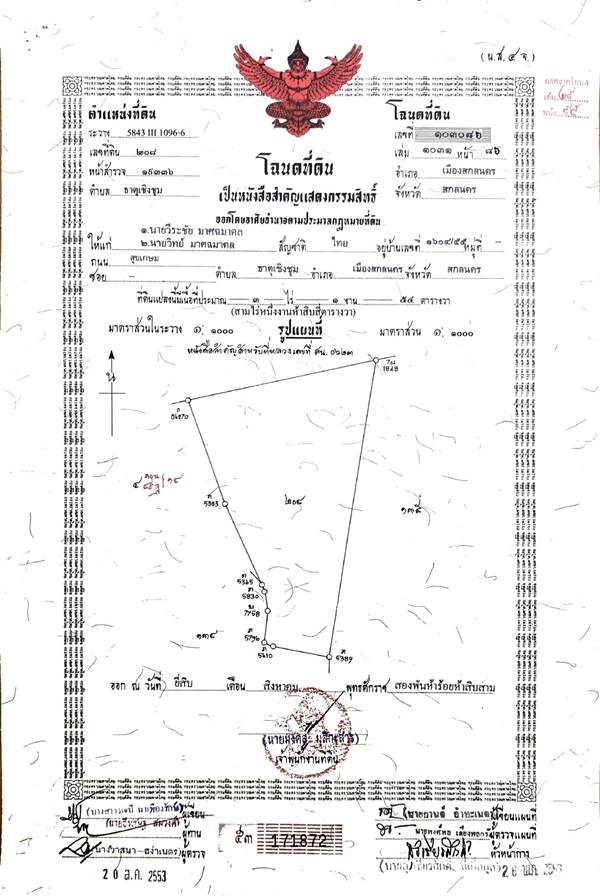 (น.ส.๔ จ.)
ตำแหน่งที่ดิน
ระวาง 5843 III 1096-6
เลขที่ดิน ๒๐๘
หน้าสำรวจ ๑๙๓๓๖
ตำบล ธาตุเชิงชุม
โฉนดที่ดิน
เลขที่ ๑๐๓๐๘๖
เล่ม ๑๐๓๑ หน้า ๘๖
อำเภอ เมืองสกลนคร
จังหวัด สกลนคร
โฉนดที่ดิน
เป็นหนังสือสำคัญแสดงกรรมสิทธิ์
ออกโดยอาศัยอำนาจตามประมวลกฎหมายที่ดิน
๑.นายวีระชัย มาศฉมาดล
ให้แก่ ๒.นายวิทย์ มาศฉมาดล สัญชาติ ไทย อยู่บ้านเลขที่ ๑๖๐๔/๕๕ หมู่ที่ –
ถนน สุขเกษม
ซอย – ตำบล ธาตุเชิงชุม อำเภอ เมืองสกลนคร จังหวัด สกลนคร
ที่ดินแปลงนี้มีเนื้อที่ประมาณ ๓ ไร่ ๑ งาน ๕๔ ตารางวา
(สามไร่หนึ่งงานห้าสิบสี่ตารางวา)
มาตราส่วนในระวาง ๑: ๑๐๐๐ รูปแผนที่ มาตราส่วน ๑: ๑๐๐๐
หนังสือสำคัญสำหรับที่หลวงเลขที่ สน. ๐๖๒๓
น
1828
5363
๒๐๘
5365
5830
7758
๑๓๔
5796
5410
5389
ออก ณ วันที่ ยี่สิบ เดือน สิงหาคม พุทธศักราช สองพันห้าร้อยห้าสิบสาม
เจ้าพนักงานที่ดิน
ผู้เขียน
ผู้ทาน
ผู้ตรวจ
๕๓ 171872
ผู้เขียนแผนที่
ผู้ตรวจแผนที่
หัวหน้าการ
20 ส.ค. 2553